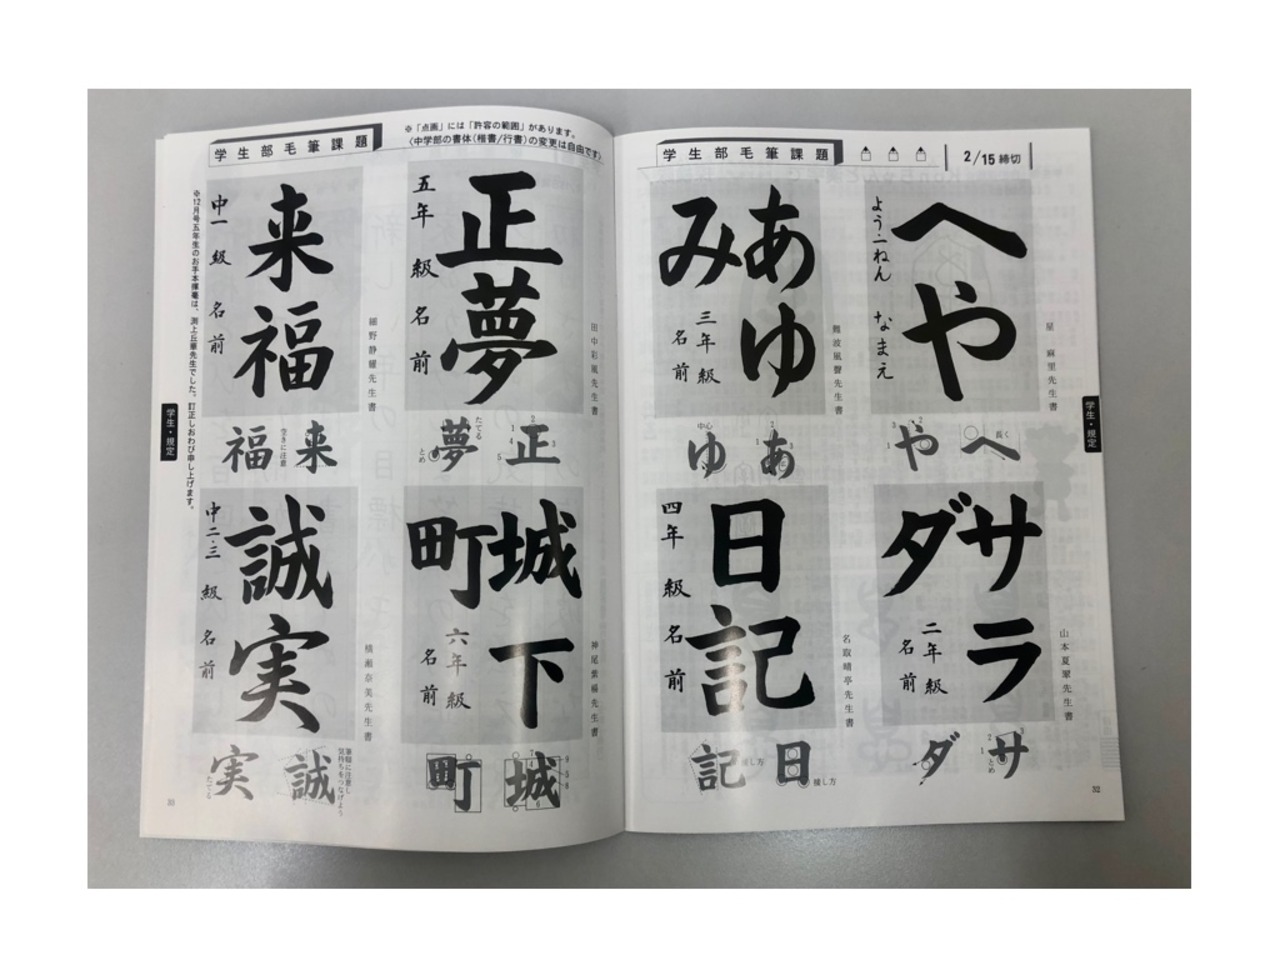 学生部毛筆課題
2/15締切
へや
よう・一ねん なまえ
星 麻里先生書
へ
長く
や
1
2
3
あゆみ
三年 級 名前
難波風聲先生書
あ
1
2
3
ゆ
中心
サラダ
二年 級 名前
山本夏翠先生書
サ
1
2
3
とめ
ダ
日記
四年 級 名前
名取晴亭先生書
日
接し方
記
接し方
学生・規定
32
学生部毛筆課題
※「点画」には「許容の範囲」があります。
〈中学部の書体(楷書/行書)の変更は自由です〉
正夢
五年 級 名前
田中彩風先生書
正
1
2
3
4
5
夢
たてる
とめ
来福
中一 級 名前
細野静耀先生書
来
空きに注意
福
城下町
六年 級 名前
神尾紫楊先生書
城
町
誠実
中二・三 級 名前
横瀬奈美先生書
誠
筆順に注意し
気持ちをつなげよう
実
たてる
※12月号五年生のお手本揮毫は、渕上丘華先生でした。訂正しおわび申し上げます。
学生・規定
33